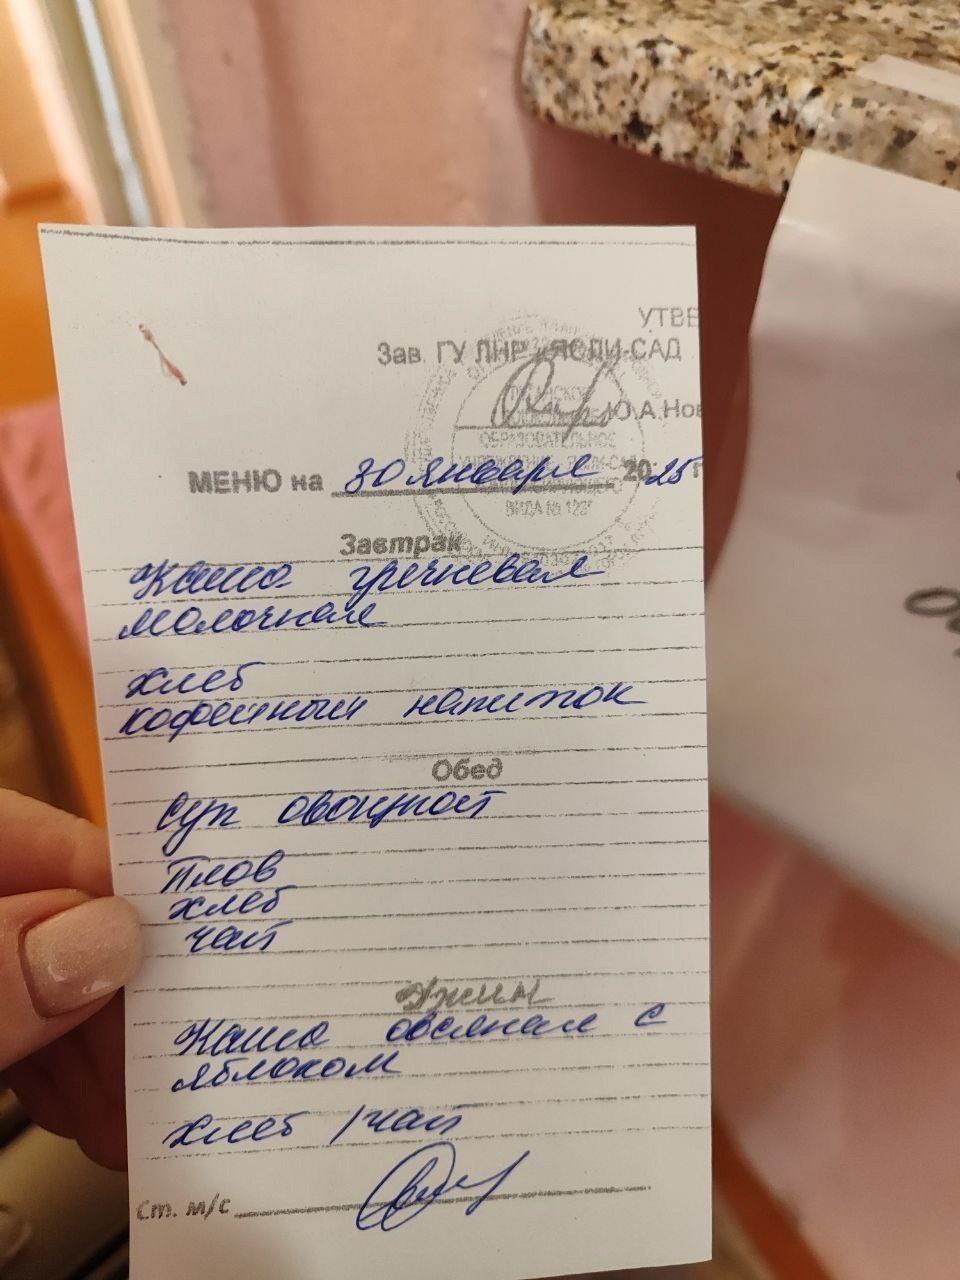 УТВЕ
Зав. ГУ ЛНР «ЯСЛИ-САД
Ю.А.Нов
МЕНЮ на 30 января 2025 г
ОБРАЗОВАТЕЛЬНОЕ
ВИДА № 123
Завтрак
Каша гречневая
молочная
хлеб
кофейный напиток
Обед
Суп овощной
Плов
хлеб
чай
Ужин
Каша овсяная с
яблоком
хлеб / чай
Ст. м/с